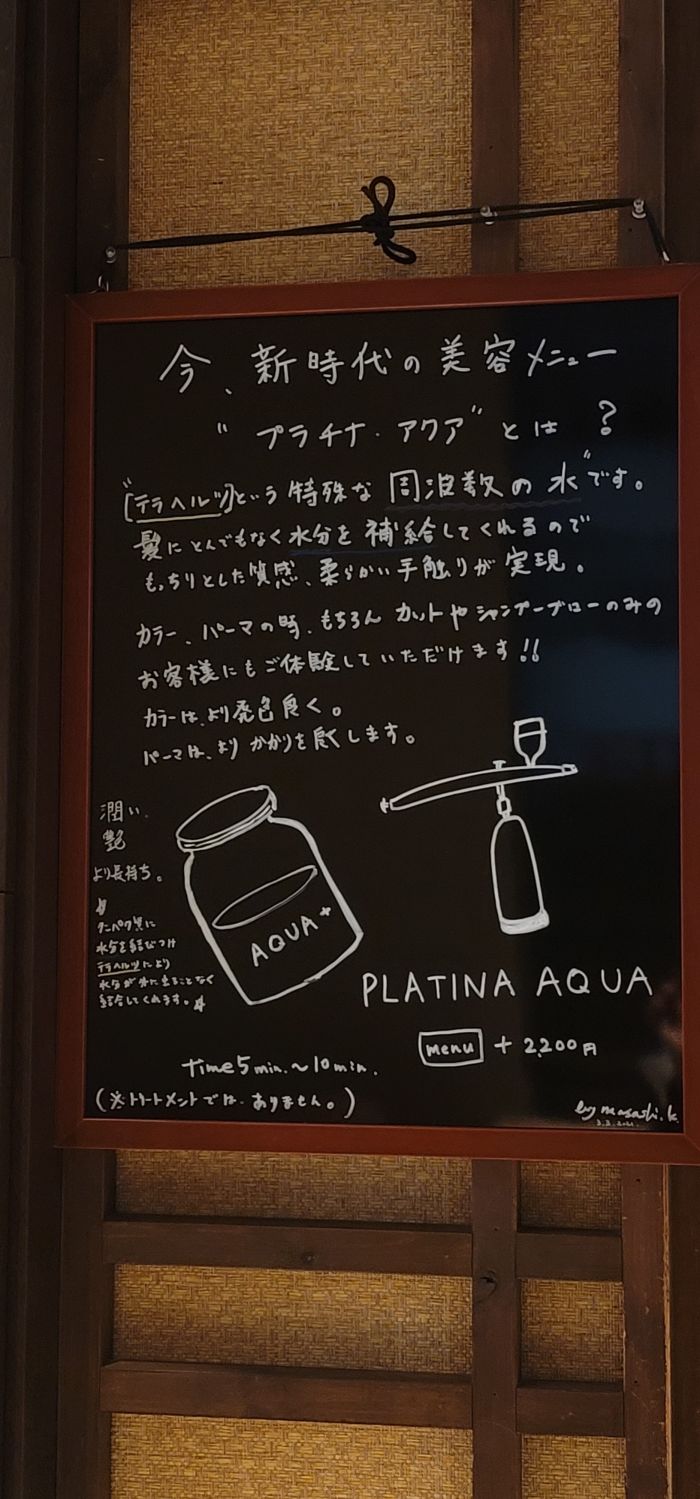 今、新時代の美容メニュー
"プラチナ・アクア"とは？
"[テラヘルツ]という特殊な周波数の水"です。
髪にとんでもなく水分を補給してくれるので
もっちりとした質感、柔らかい手触りが実現。
カラー、パーマの時、もちろんカットやシャンプーブローのみの
お客様にもご体験していただけます!!
カラーは、より発色良く。
パーマは、よりかかりを良くします。
潤い、
艶
より長持ち。
タンパク質に
水分を結びつけ
テラヘルツにより
水分が外に出ることなく
結合してくれます。
AQUA+
PLATINA AQUA
menu + 2,200円
time 5min.~10min.
(※トリートメントではありません。)
by masashi.k.